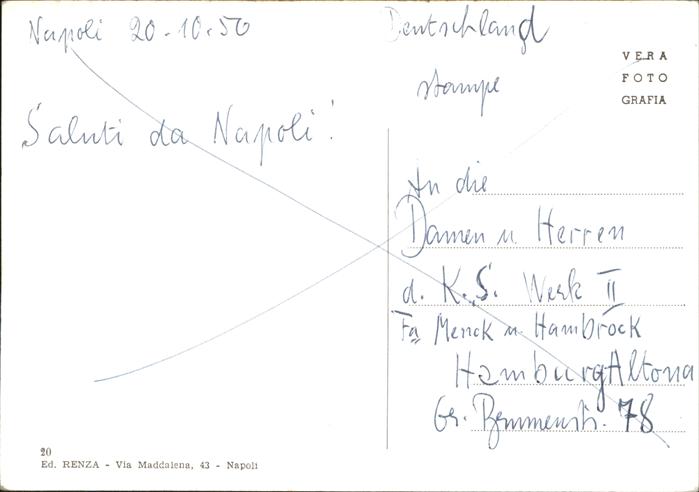 Napoli 20-10-50
Saluti da Napoli!
Deutschland
stampe
VERA
FOTO
GRAFIA
An die
Damen u. Herren
d. K.S. Werk II
Fa Menck u. Hambrock
Hamburg Altona
Gr. Brunnenstr. 78
20
Ed. RENZA - Via Maddalena, 43 - Napoli